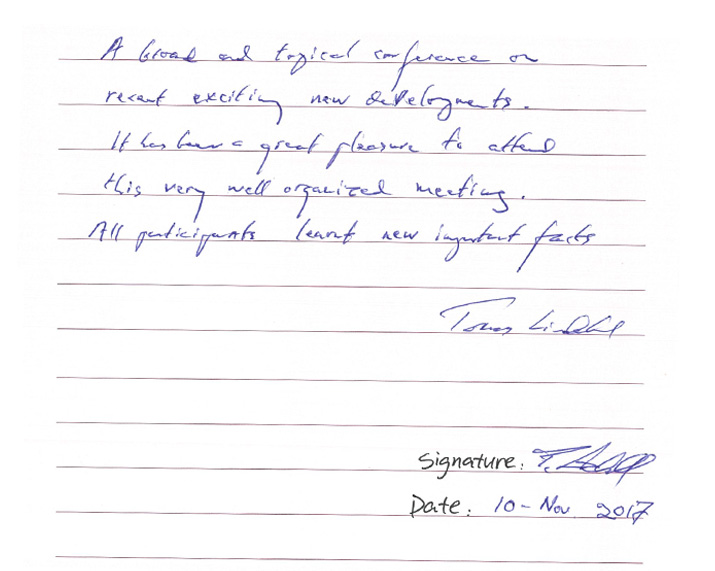 A broad and topical conference on
recent exciting new developments.
It has been a great pleasure to attend
this very well organized meeting.
All participants learnt new important facts
Tomas Lindahl
Signature: T. Lindahl
Date: 10-Nov 2017